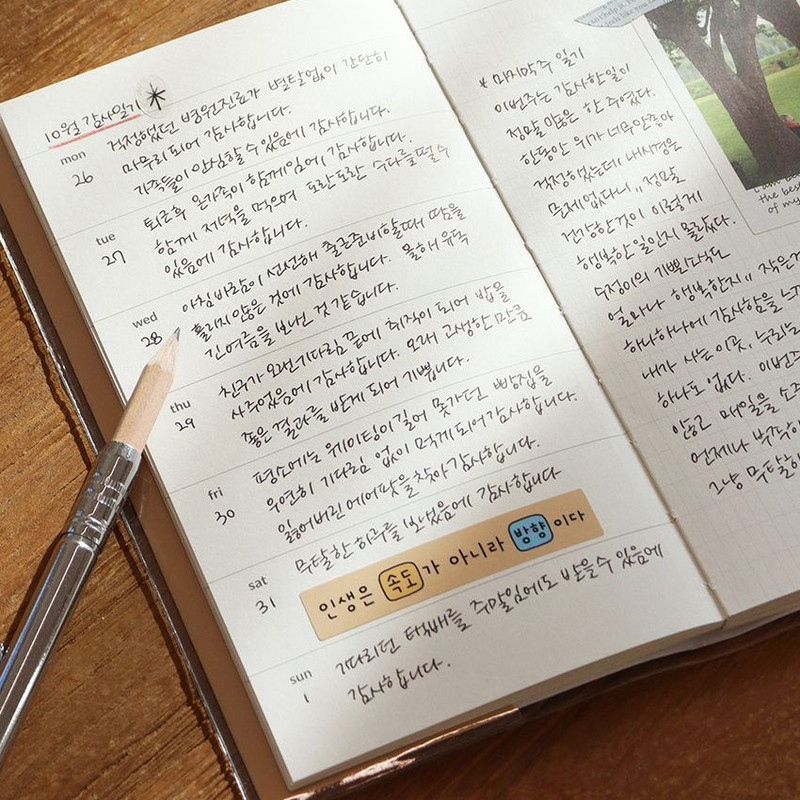 10월 감사일기
mon
26
걱정했던 병원진료가 별탈없이 간단히
마무리 되어 감사합니다.
가족들이 안심할 수 있음에 감사합니다.
tue
27
퇴근후 온가족이 함께임에 감사합니다.
함께 저녁을 먹으며 도란도란 수다를 떨 수
있음에 감사합니다.
wed
28
아침 바람이 선선해 출근준비할때 땀을
흘리지 않은 것에 감사합니다. 올해 유독
긴 여름을 보낸 것 같습니다.
thu
29
친구가 오랜기다림 끝에 취직이 되어 밥을
사주었음에 감사합니다. 오래 고생한 만큼
좋은 결과를 받게 되어 기쁩니다.
fri
30
평소에는 웨이팅이 길어 못가던 빵집을
우연히 기다림 없이 먹게 되어 감사합니다.
잃어버린 에어팟을 찾아 감사합니다.
sat
31
무탈한 하루를 보냈음에 감사합니다
인생은 속도가 아니라 방향이다
sun
1
기다리던 택배를 주말임에도 받을 수 있음에
감사합니다.
* 마지막 주 일기
이번주는 감사한일이
정말 많은 한 주였다.
한동안 위가 너무 안좋아
걱정했는데 내시경은
문제없다니 정말
건강한 것이 이렇게
행복한 일인지 몰랐다.
수정이의 기쁜 소식도
얼마나 행복한지 작은
하나하나에 감사함을
내가 사는 이곳, 누리는
하나도 없다. 이번주
않고 매일을
언제나
그냥
the bes
of my